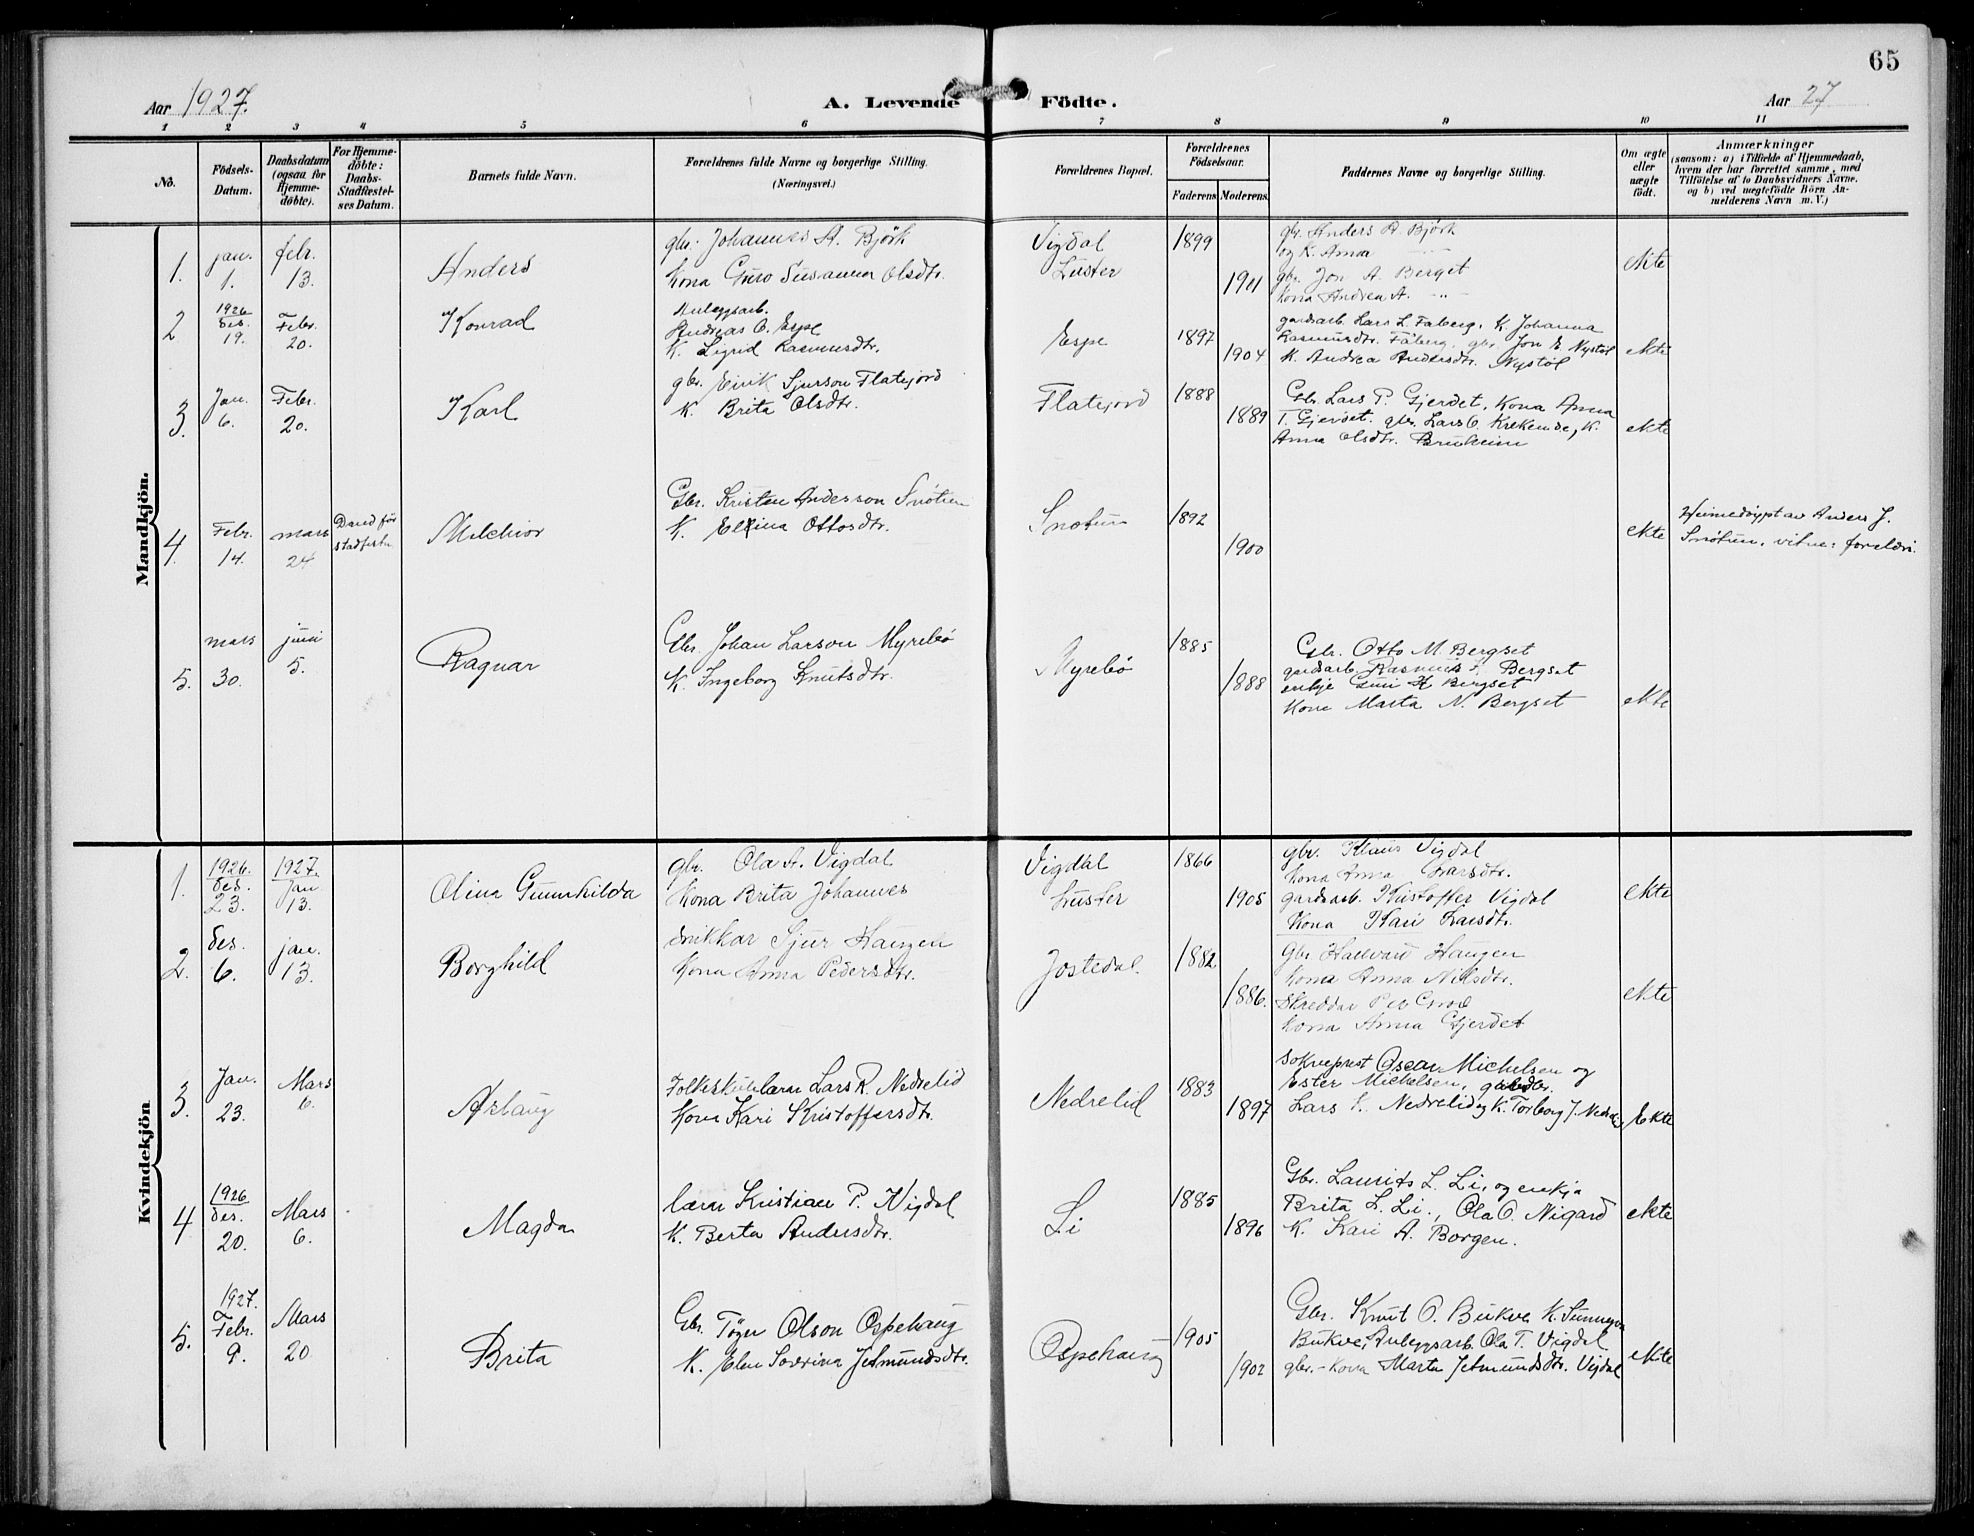 65
Aar 1927.
A. Levende Födte.
Aar 27
1 2 3 4 5 6 7 8 9 10 11
No.
Födsels-Datum.
Daabsdatum (ogsaa for Hjemme-döbte).
For Hjemme-döbte: Daabs-Stadfæstel-ses Datum.
Barnets fulde Navn.
Forældrenes fulde Navne og borgerlige Stilling.
(Næringsvei.)
Forældrenes Bopæl.
Forældrenes Födselsaar.
Faderens. Moderens.
Faddernes Navne og borgerlige Stilling.
Om ægte eller uægte födt.
Anmærkninger
(saasom: a) i Tilfælde af Hjemmedaab,
hvem der har forrettet samme, med
Tilföielse af to Daabsvidners Navne.
og b) ved uægtefödte Börn An-
melderens Navn m. V.)
Mandkjön.
1. jan. 1. febr. 13. Anders
gbr. Johannes A. Björk
kona Guro Susanna Olsdtr.
Vigdal
Luster
1899
1901
gbr. Anders A. Björk
og K. Anna
gbr. Jon A. Berget
kona Andrea A. -"-
ekte
2 1926 des. 19. Febr. 20. Konrad
Anleggsarb.
Andreas O. Espe
K. Sigrid Rasmusdtr.
Espe
1897
1904
gardsarb. Lars L. Faberg, K. Johanna
Rasmusdtr. Fåberg, gbr. Jon E. Nystöl
K. Andrea Andersdtr. Nystöl
ekte
3. Jan. 6. Febr. 20. Karl
gbr. Eirik Sjurson Flatejord
K. Brita Olsdtr.
Flatejord
1888
1889
Gbr. Lars P. Gjerdet, Kona Anna
T. Gjerdet. gbr. Lars O. Krekenes, K.
Anna Olsdtr. Bruheim
ekte
4. Febr. 14. mars 24 Daud för stadfesta Melchior
Gbr. Kristen Anderson Snötun
K. Elina Ottosdtr.
Snøtun
1892
1900
ekte
Heimedöypt av Anders J.
Snötun, vitne: foreldri.
5. mars 30. juni 5. Ragnar
Gbr. Johan Larson Myrebö
K. Ingeborg Knutsdtr.
Myrebö
1885
1888
Gbr. Otto M. Bergset
gardsarb. Rasmus Bergset
enkje Guri H Bergset
Kona Marta N. Bergset
ekte
Kvindekjön
1. 1926. des. 23. 1927. jan 13. Olina Gunnhilda
gbr. Ola A. Vigdal
Kona Brita Johannes
Vigdal
Luster
1866
1905
gbr. Klaus Vigdal
Kona Anna Larsdtr.
gardsarb. Kristoffer Vigdal
Kona Kari Larsdtr.
ekte
2. des. 6. jan. 13. Borghild
snikkar Sjur Haugen
Kona Anna Pedersdtr.
Jostedal.
1882
1886.
Gbr Hallvard Haugen
Kona Anna Nilsdtr.
Skreddar Per
Kona Anna Gjerdet
ekte
3. Jan. 23. Mars 6. Aslaug
Folkeskulelærar Lars R. Nedrelid
Kona Kari Kristoffersdtr.
Nedrelid
1883
1897
Sokneprest Oscar Michelsen og
Ester Michelsen, gardbr.
Lars Nedrelid og K. Torborg J. Nedrelid
Ekte
4 1926 des. 20. Mars 6. Magda
lærar Kristian P. Vigdal
K. Berta Andersdtr.
Li
1885
1896
Gbr. Laurits L. Li, og enkja
Brita L. Li., Ola O. Nigard
K. Kari A. Borgen.
ekte
5. 1927. Febr. 9. Mars 20 Brita
Gbr. Töger Olson Ospehaug
K. Elen Soverina Jetmundsdtr.
Ospehaug
1905
1902
Gbr. Knut O. Bukve, K. Sunneva
Bukve, Anleggsarb. Ola T. Vigdal
gbr.-kona Marta Jetmundsdtr. Vigdal
ekte